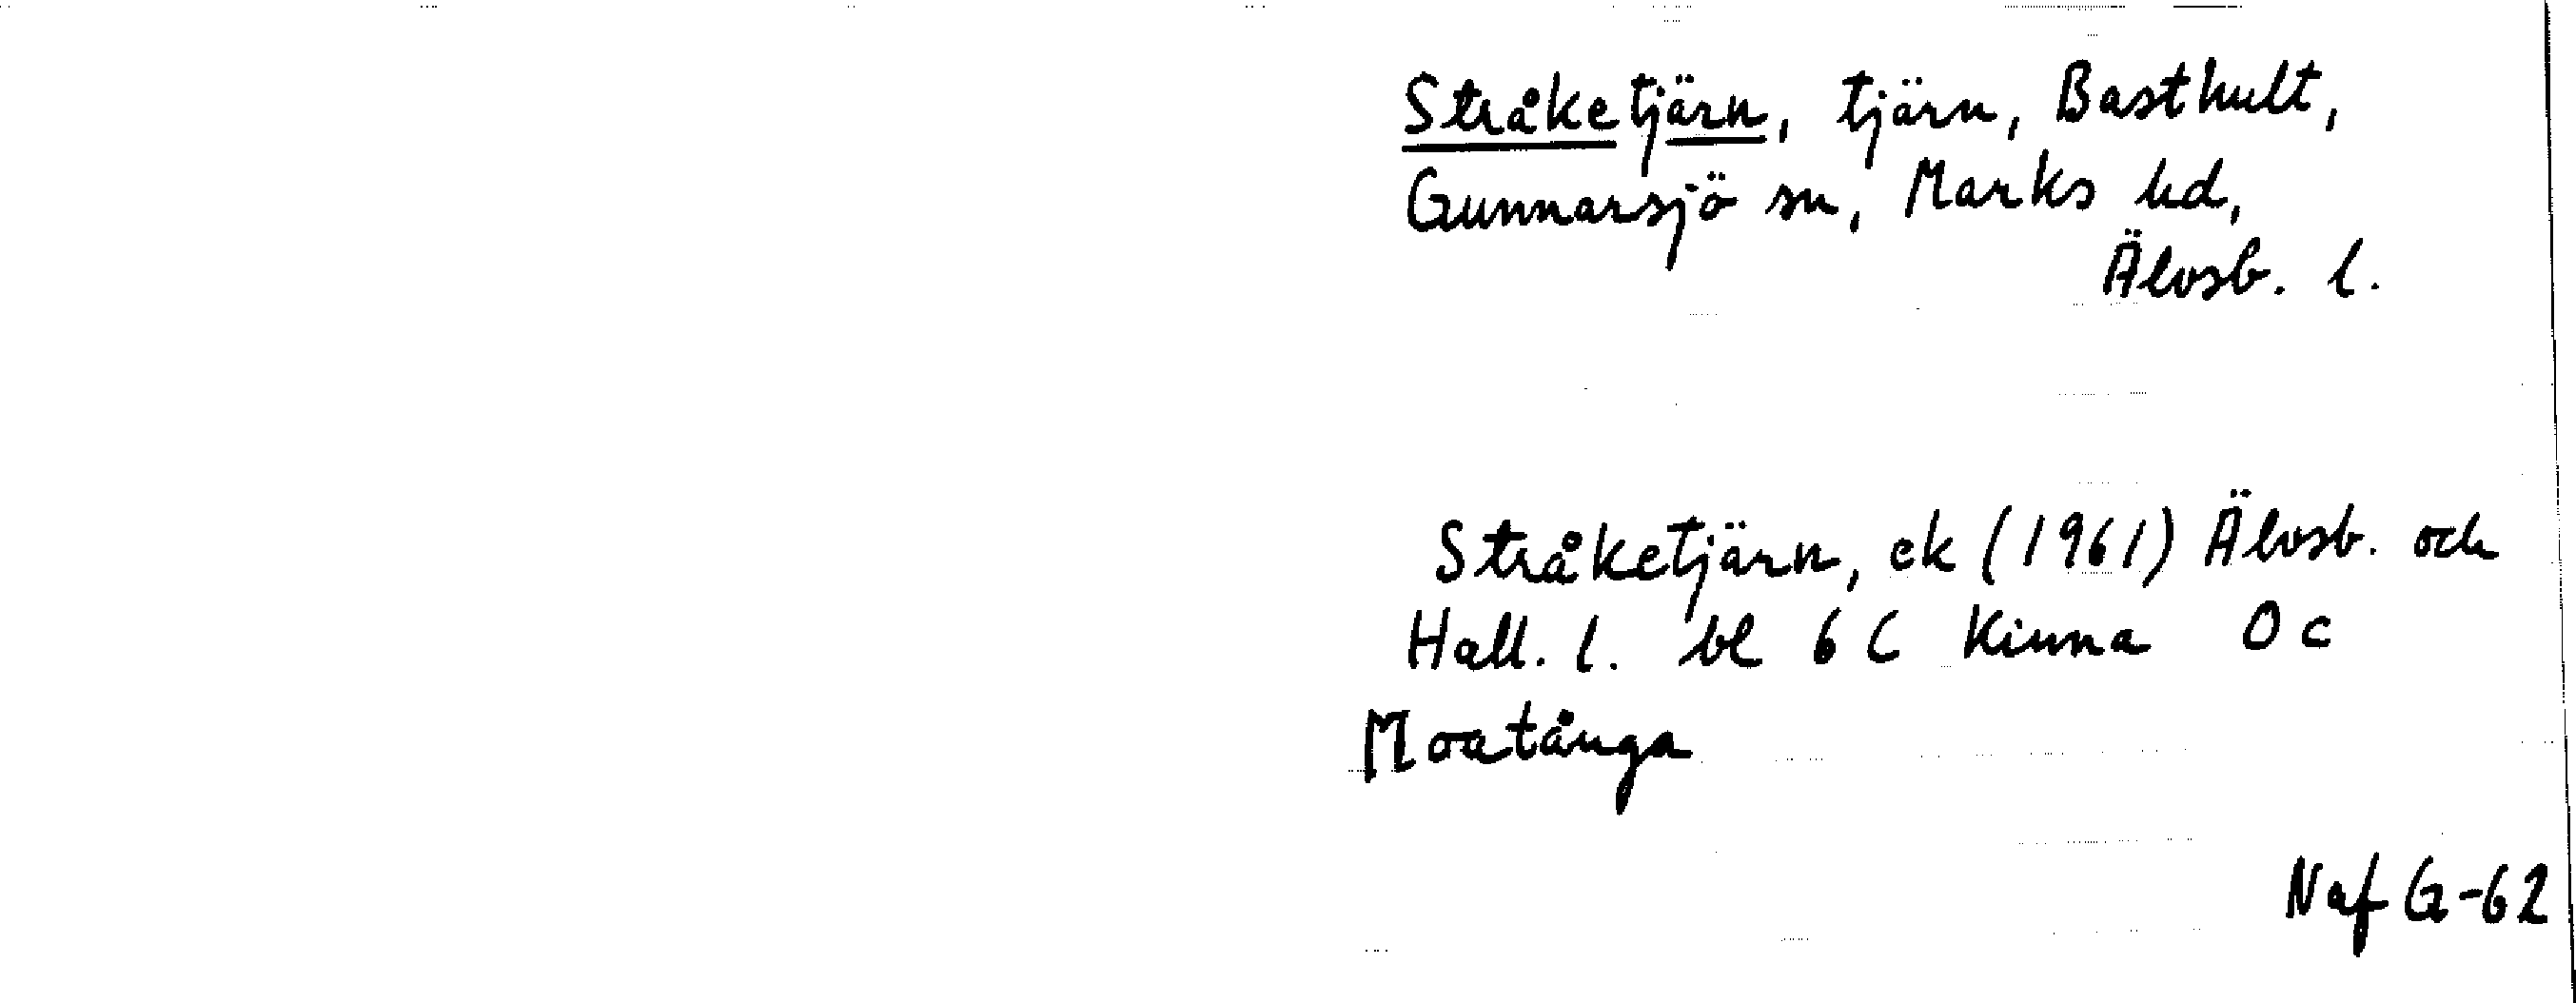 Stråketjärn, tjärn, Basthult,
Gunnarsjö sn, Marks hd,
Älvsb. l.
Stråketjärn, ek (1961) Älvsb. och
Hall. l. bl 6 C Kinna 0 c
Moatånga
Naf G-62